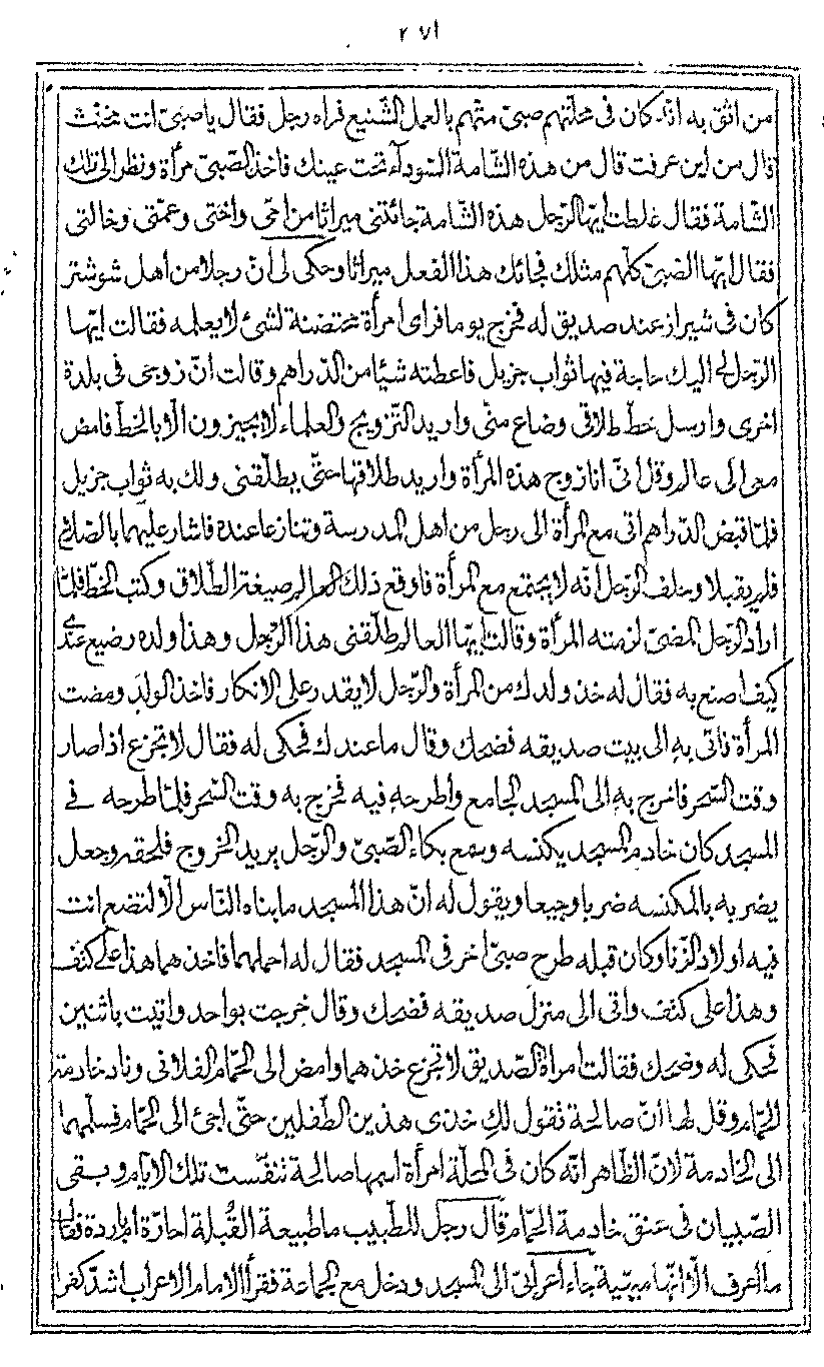 ٢٧١
من اثق به انّه كان فى محلّتهم صبىّ متّهم بالعمل الشّنيع فراه رجل فقال يا صبىّ انت مخنّث
قال من اين عرفت قال من هذه الشّامة السّوداء تحت عينك فاخذ الصّبىّ مرأة ونظر الى تلك
الشامة فقال غلطت ايّها الرّجل هذه الشّامة جائتنى ميراثا من امّى واختى وعمّتى وخالتى
فقال ايّها الصّبىّ كلّهم مثلك فجائك هذا الفعل ميراثا وحكى لى انّ رجلا من اهل شوشتر
كان فى شيراز عند صديق له فخرج يوما فراى امرأة محتضنة لشئ لا يعلمه فقالت ايّها
الرّجل لى اليك حاجة فيها ثواب جزيل فاعطته شيئا من الدّراهم وقالت انّ زوجى فى بلدة
اخرى وارسل خطّ طلاقى وضاع منّى واريد التّزويج والعلماء لا يجيزون الّا بالخطّ فامض
معى الى عالم وقل انّى انا زوج هذه المرأة واريد طلاقها حتّى يطلّقنى ولك به ثواب جزيل
فلمّا قبض الدّراهم اتى مع المرأة الى رجل من اهل المدرسة وتنازعا عنده فاشار عليهما بالصّلح
فلم يقبلا وحلف الرّجل انّه لا يجتمع مع المرأة فاوقع ذلك العالم صيغة الطّلاق وكتب الخطّ فلمّا
اراد الرّجل المضىّ لزمته المرأة وقالت ايّها العالم طلّقنى هذا الرّجل وهذا ولده رضيع عندى
كيف اصنع به فقال له خذ ولدك من المرأة والرّجل لا يقدر على الانكار فاخذ الولد ومضت
المرأة فاتى به الى بيت صديقه فضحك وقال ما عندك فحكى له فقال لا تجزع اذا صار
وقت السّحر فاخرج به الى المسجد الجامع واطرحه فيه فخرج به وقت السّحر فلمّا طرحه فى
المسجد كان خادم المسجد يكنسه وسمع بكاء الصّبىّ والرّجل يريد الخروج فلحقه وجعل
يضربه بالمكنسه ضربا وجيعا ويقول له انّ هذا المسجد ما بناه النّاس الّا لتضع انت
فيه اولاد الزّنا وكان قبله طرح صبىّ اخر فى المسجد فقال له احملهما فاخذهما هذا على كتف
وهذا على كتف واتى الى منزل صديقه فضحك وقال خرجت بواحد واتيت باثنين
فحكى له وضحك فقالت امراة الصّديق لا تجزع خذهما وامض الى الحمّام الفلانى وناد خادمة
الحمّام وقل لها انّ صالحة تقول لك خذى هذين الطّفلين حتّى اجئ الى الحمّام فسلّمهما
الى الخادمة لانّ الظّاهر انّه كان فى المحلّة امرأة اسمها صالحة تنفّست تلك الايّام وبقى
الصّبيان فى عنق خادمة الحمّام قال رجل للطّبيب ما طبيعة القُبلة احارّة ام باردة فقال
ما اعرف الّا انّها مهيّية جاء أعرابىّ الى المسجد ودخل مع الجماعة فقرأ الامام الاعراب اشدّ كفرا